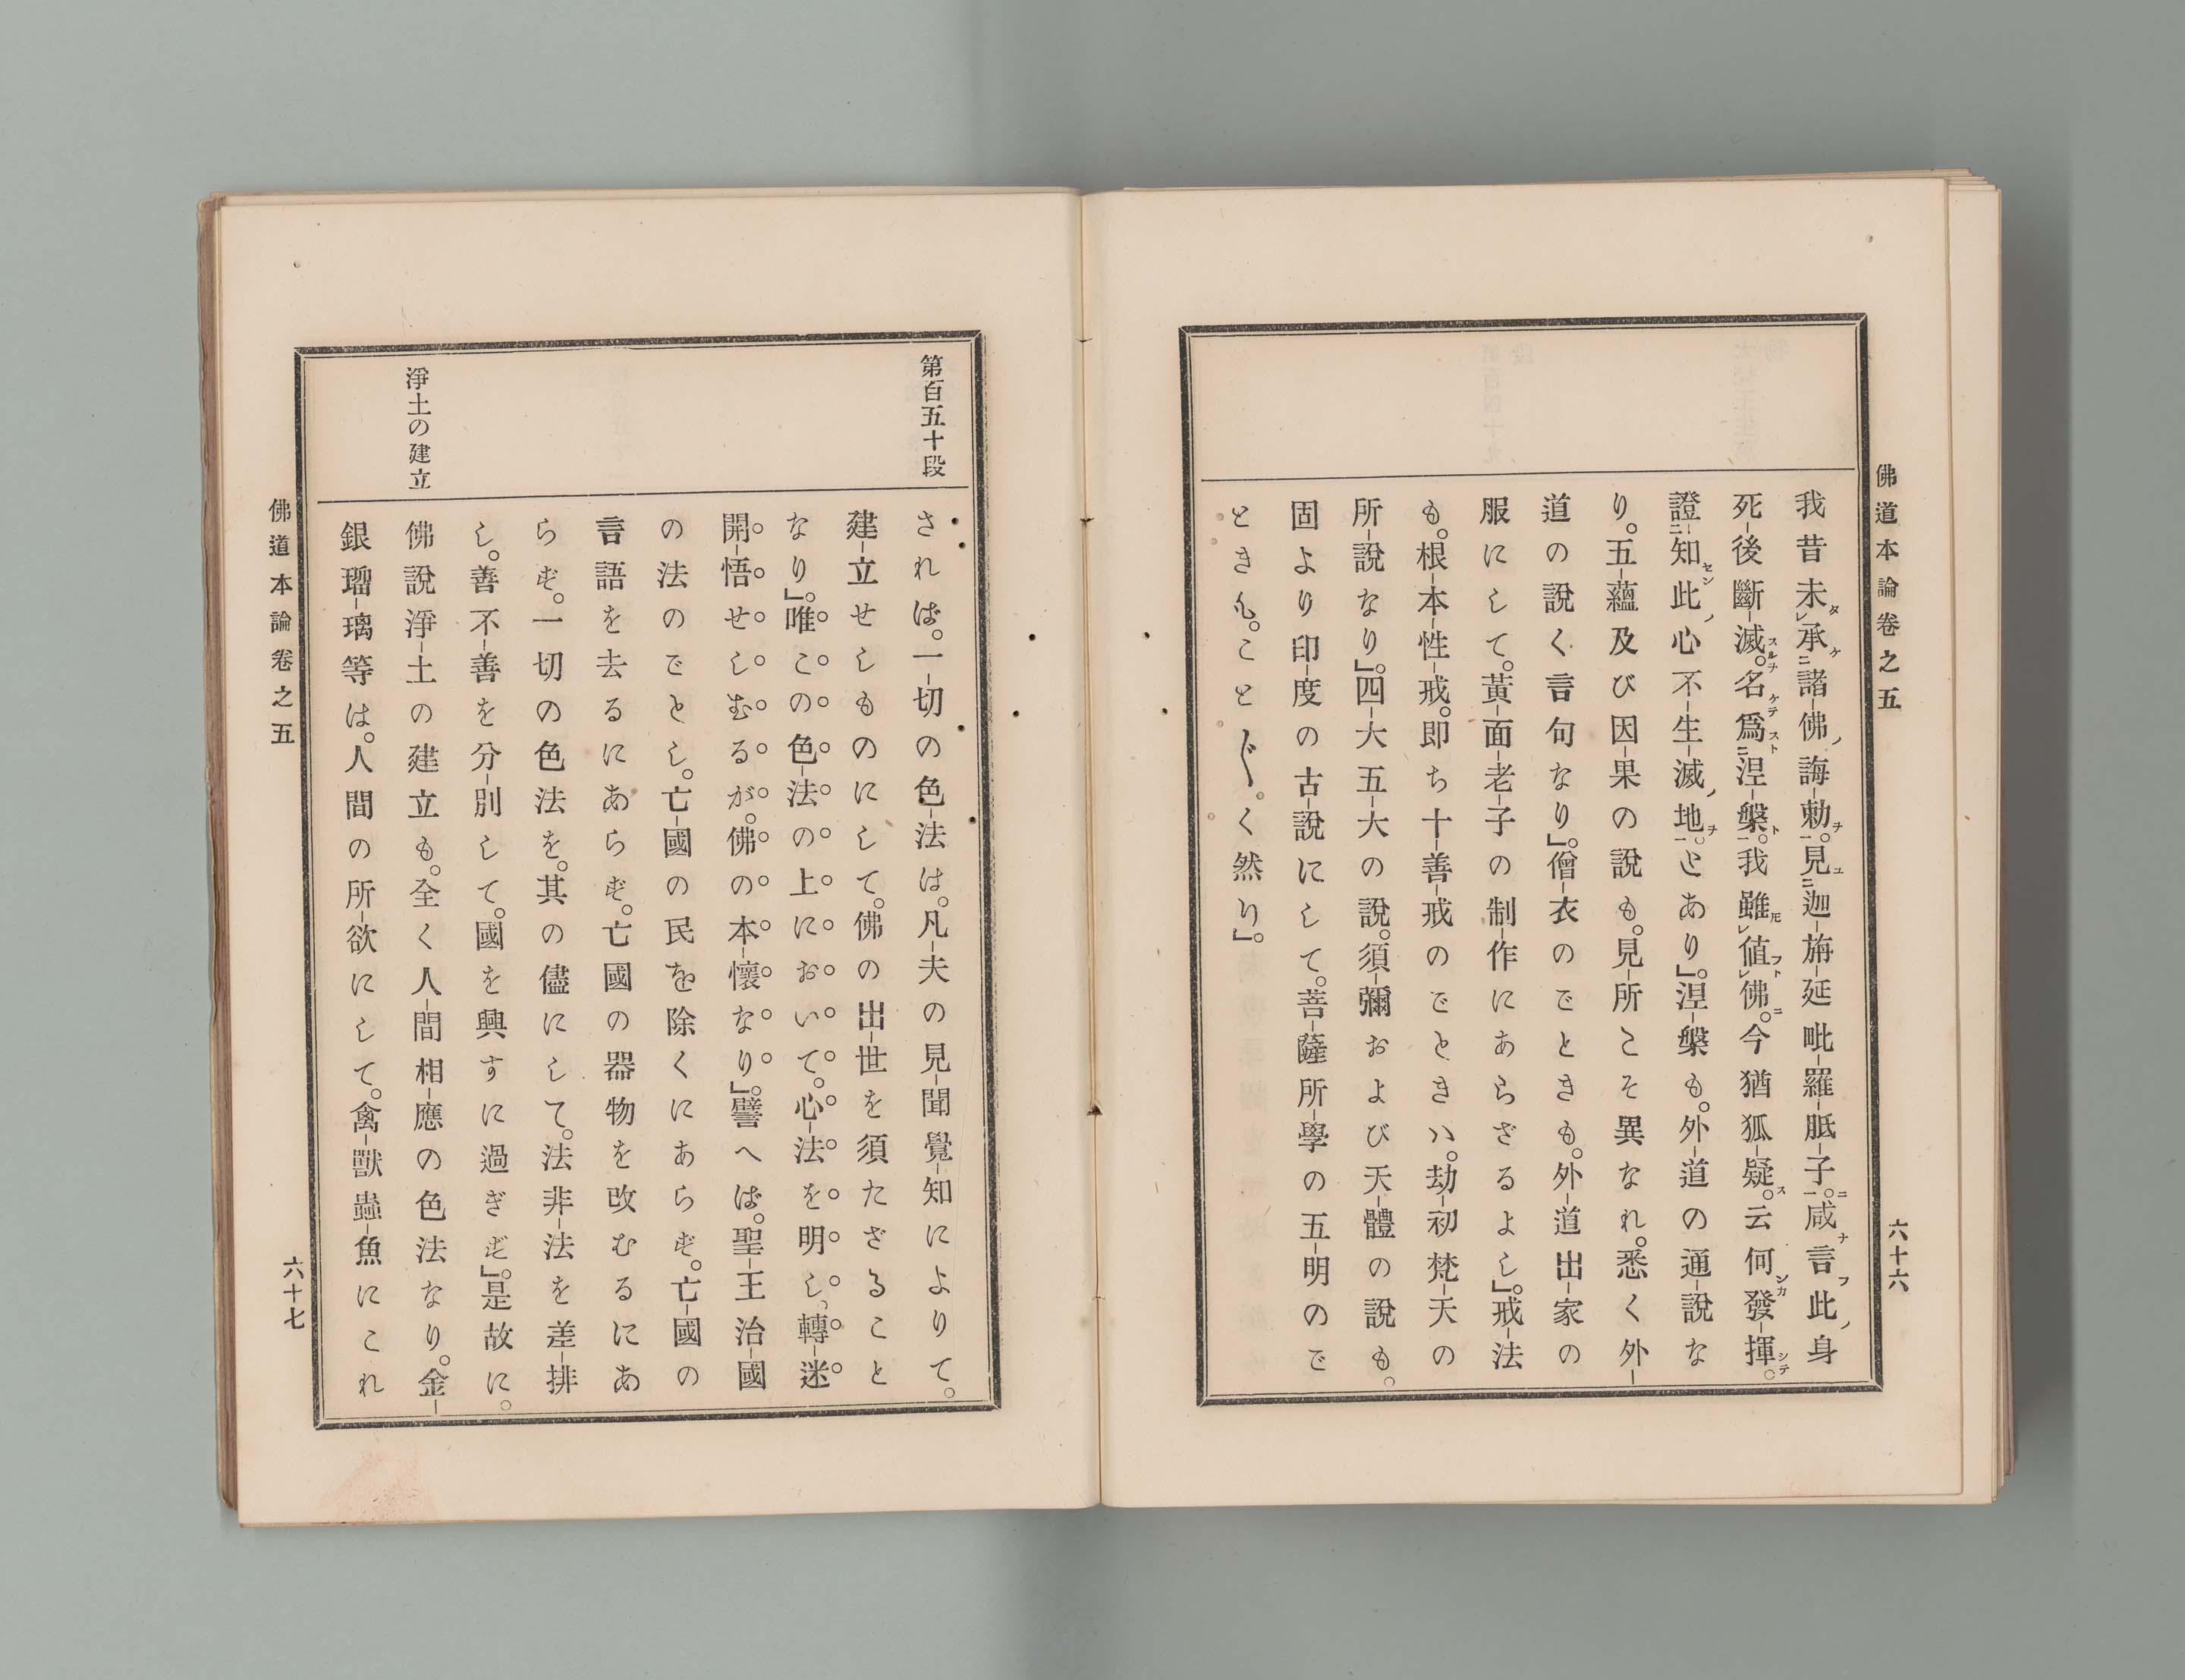 佛道本論卷之五
六十六
我昔未レ承ニ諸佛ノ誨勅ヲ一。見ニ迦旃延毗羅胝子ニ一。咸言フ此ノ身
死後斷滅。名爲ニ涅槃ト一。我雖レ値レ佛。今猶狐疑。云何發揮。
證ニ知此ノ心不生滅ノ地ヲ一。とあり」。涅槃も。外道の通說な
り。五蘊及び因果の說も。見所こそ異なれ。悉く外
道の說く言句なり」。僧衣のごときも。外道出家の
服にして。黃面老子の制作にあらざるよし」。戒法
も。根本性戒。即ち十善戒のごときハ。劫初梵天の
所說なり」。四大五大の說。須彌および天體の說も。
固より印度の古說にして。菩薩所學の五明のご
ときも。こと〲く然り」。
第百五十段
されば。一切の色法は。凡夫の見聞覺知によりて。
建立せしものにして。佛の出世を須たざること
なり」。唯この色法の上において。心法を明し、轉迷
開悟せしむるが。佛の本懷なり」。譬へば。聖王治國
の法のごとし。亡國の民を除くにあらず。亡國の
言語を去るにあらず。亡國の器物を改むるにあ
らず。一切の色法を。其の儘にして。法非法を差排
し。善不善を分別して。國を興すに過ぎず」。是故に。
淨土の建立
佛說淨土の建立も。全く人間相應の色法なり。金
銀瑠璃等は。人間の所欲にして。禽獸蟲魚にこれ
佛道本論卷之五
六十七